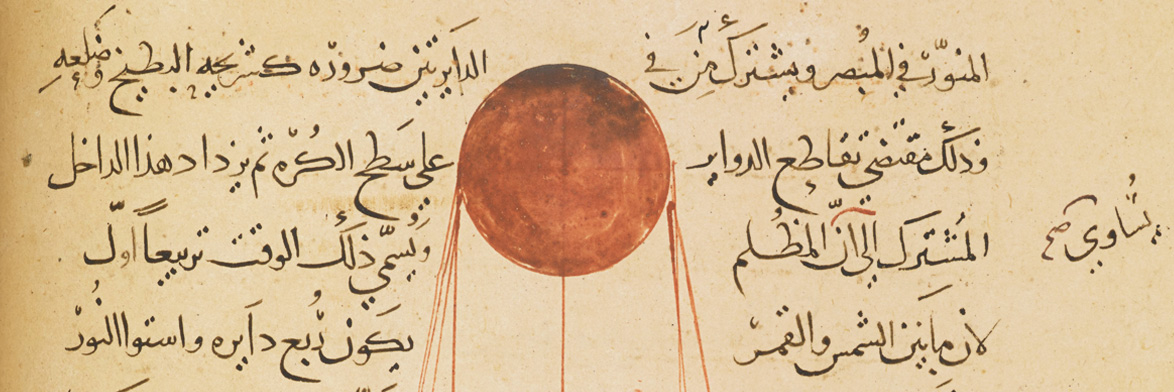 المنوّر في المبصر ويشترك من في الدايرتين ضروره كشريحه البطيخ وضلعه
وذلك مقتضي تقاطع الدواير على سطح الكره ثم يزداد هذا الداخل
المشترك الى آن المظلم ويسمى ذلك الوقت تربيعاً اوّل
لان ما بين الشمس والقمر يكون ربع دايره واستوا النور
يساوي صح